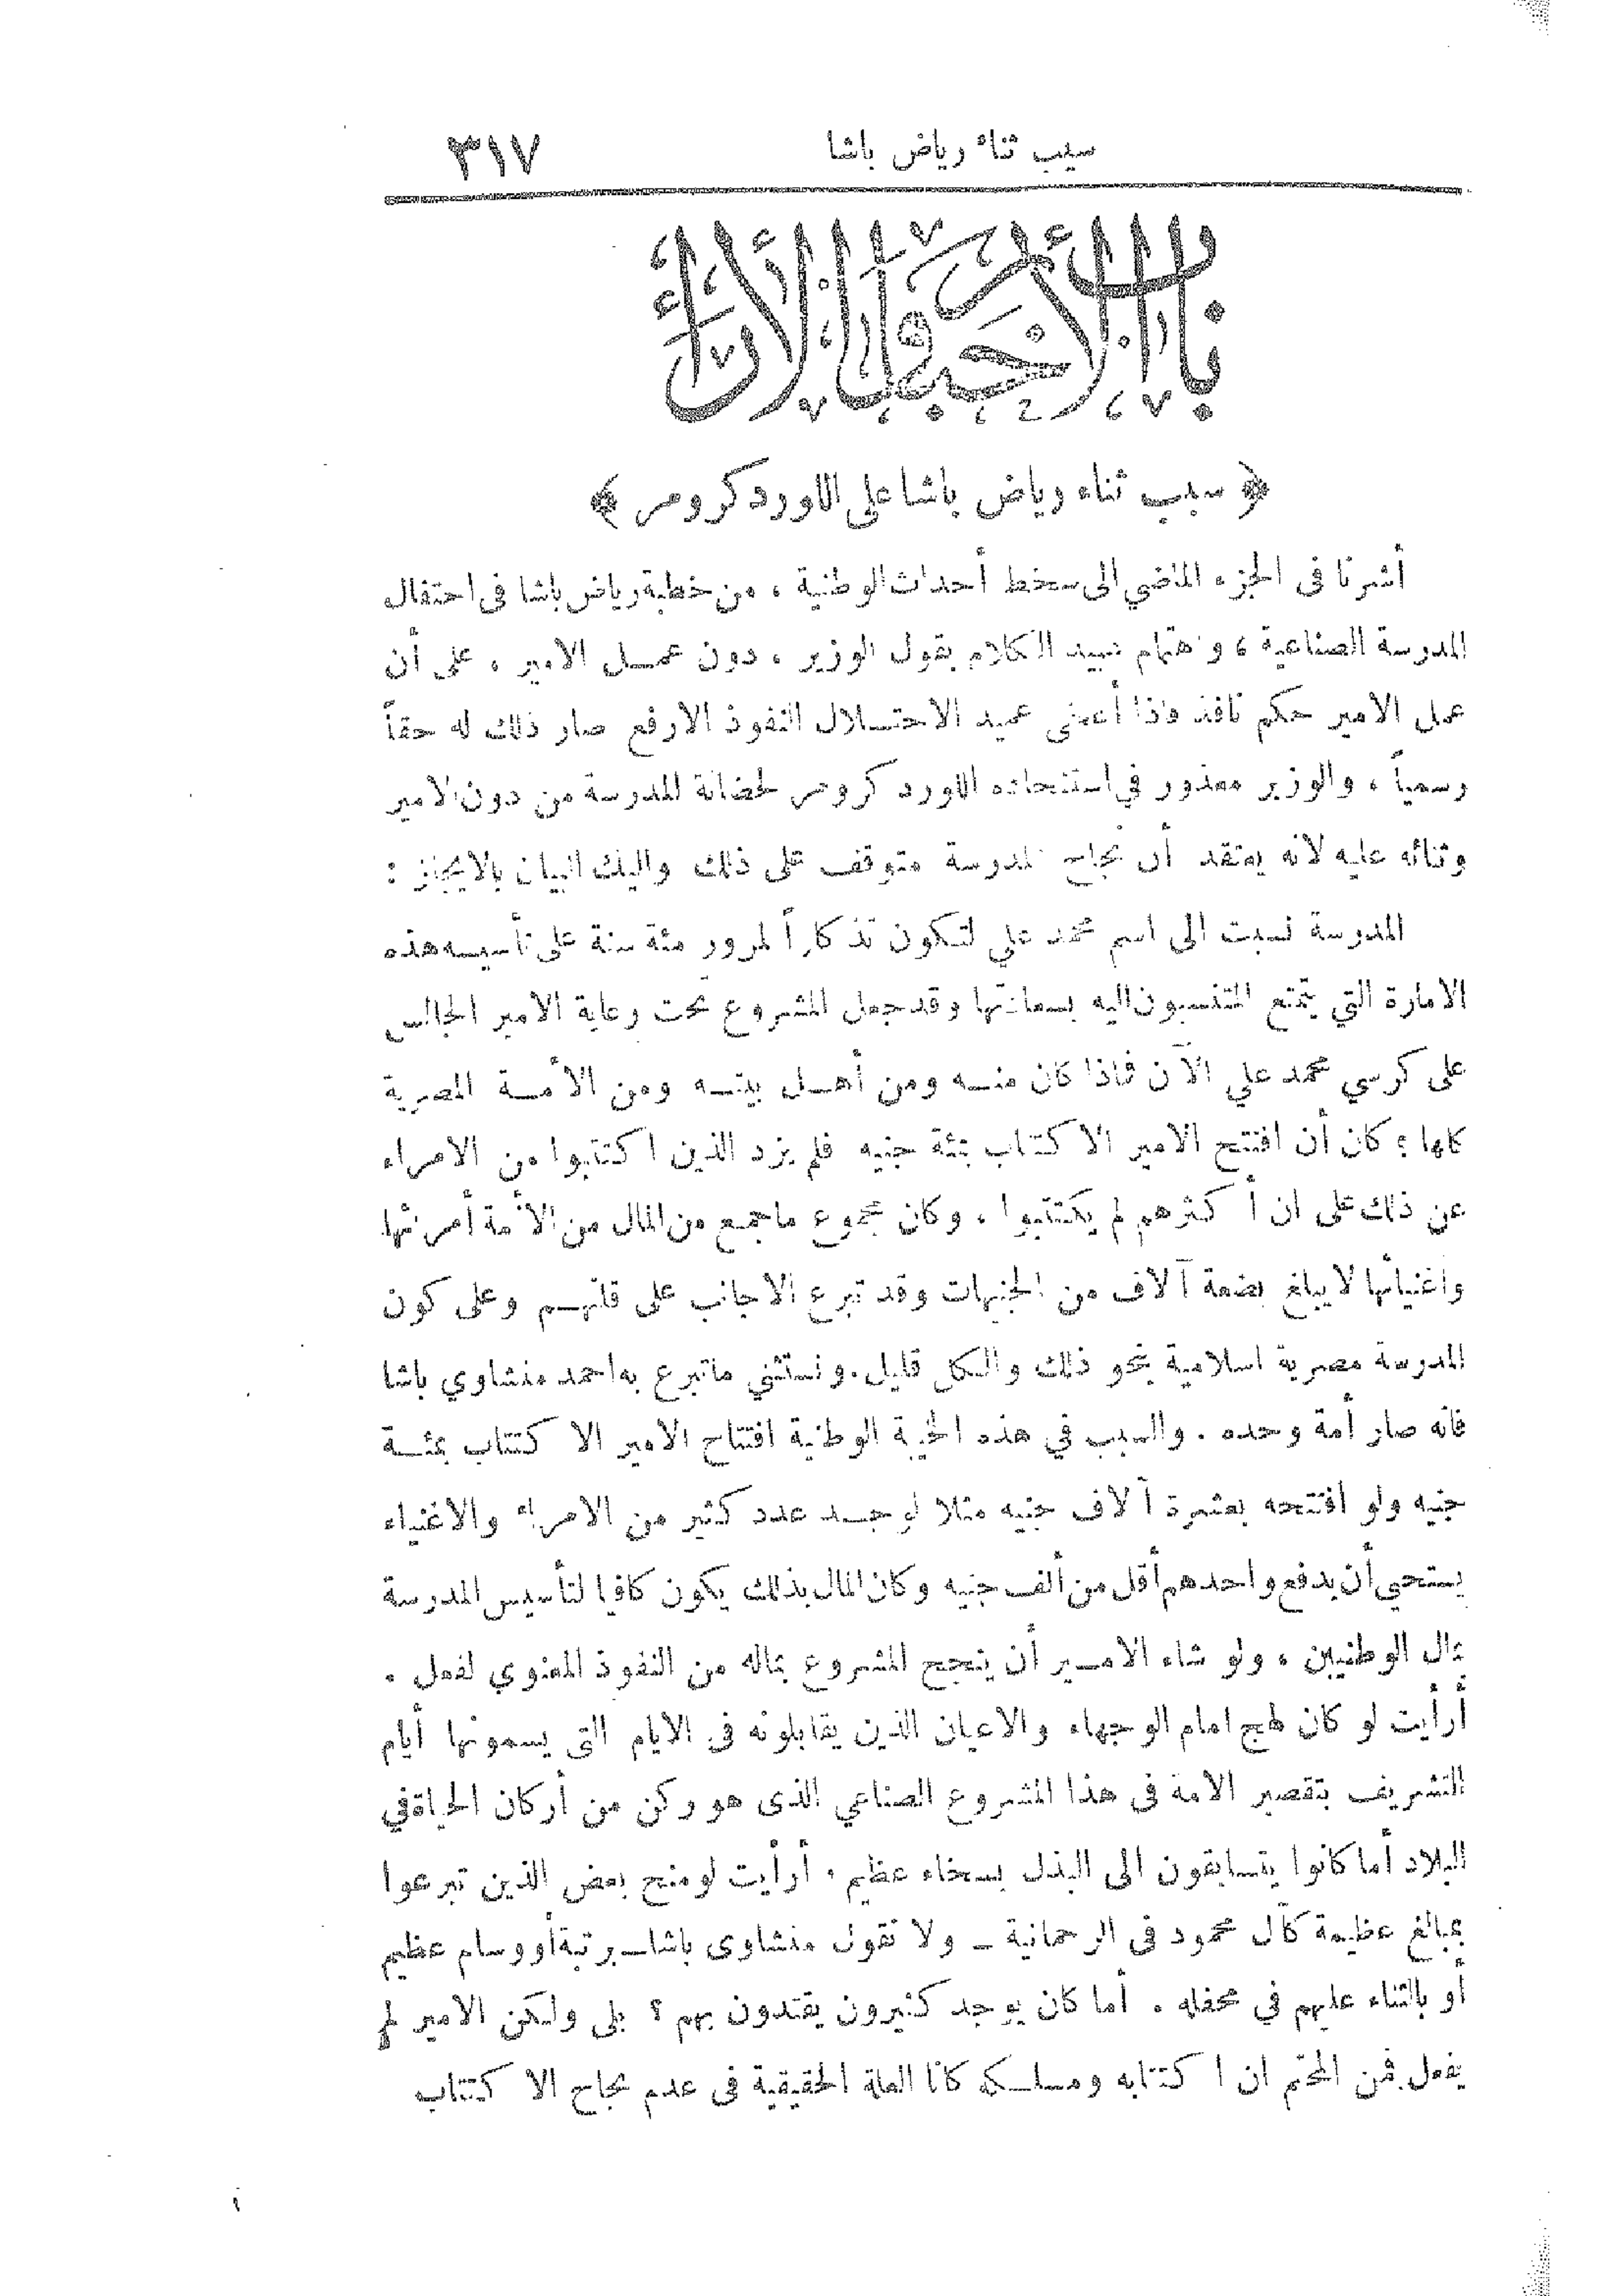 سبب ثناء رياض باشا ٣١٧
باب الأخبار والآراء
﴿ سبب ثناء رياض باشا على اللورد كرومر ﴾
أشرنا فى الجزء الماضي الى سخط أحداث الوطنية ، من خطبة رياض باشا فى احتفال
المدرسة الصناعية ، واهتمام عبيد الكلام بقول الوزير ، دون عمل الامير ، على أن
عمل الامير حكم نافذ فاذا أعطى عميد الاحتلال النفوذ الارفع صار ذلك له حقاً
رسمياً ، والوزير معذور في استنجاده اللورد كرومر لحضانة المدرسة من دون الامير
وثنائه عليه لانه يعتقد أن نجاح المدرسة متوقف على ذلك واليك البيان بالايجاز :
المدرسة نسبت الى اسم محمد علي لتكون تذكاراً لمرور مئة سنة على تأسيسه هذه
الامارة التي يتمتع المنتسبون اليه بسعادتها وقد جعل المشروع تحت رعاية الامير الجالس
على كرسي محمد علي الآن فماذا كان منه ومن أهل بيته ومن الأمة المصرية
كلها ؟ كان أن افتتح الامير الاكتتاب بمئة جنيه فلم يزد الذين اكتتبوا من الامراء
عن ذلك على ان أكثرهم لم يكتتبوا ، وكان مجموع ما جمع من المال من الأمة أمرائها
واغنيائها لا يبلغ بضعة آلاف من الجنيهات وقد تبرع الاجانب على قلتهم وعلى كون
المدرسة مصرية اسلامية بنحو ذلك والكل قليل . ونستثني ما تبرع به احمد منشاوي باشا
فانه صار أمة وحده . والسبب في هذه الخيبة الوطنية افتتاح الامير الاكتتاب بمئة
جنيه ولو افتتحه بعشرة آلاف جنيه مثلا لوجد عدد كثير من الامراء والاغنياء
يستحي أن يدفع واحدهم أقل من ألف جنيه وكان المال بذلك يكون كافيا لتأسيس المدرسة
بمال الوطنيين ، ولو شاء الامير أن ينجح المشروع بماله من النفوذ المعنوي لفعل .
أرأيت لو كان لهج امام الوجهاء والاعيان الذين يقابلونه في الايام التى يسمونها أيام
التشريف بتقصير الامة فى هذا المشروع الصناعي الذى هو ركن من أركان الحياة في
البلاد أما كانوا يتسابقون الى البذل بسخاء عظيم . أرأيت لو منح بعض الذين تبرعوا
بمبالغ عظيمة كآل محمود فى الرحمانية ــ ولا نقول منشاوى باشا ــ برتبة أو وسام عظيم
أو بالثناء عليهم في محفله . أما كان يوجد كثيرون يقتدون بهم ؟ بلى ولكن الامير لم
يفعل فمن المحتم ان اكتتابه ومسلكه كانا العلة الحقيقية فى عدم نجاح الاكتتاب